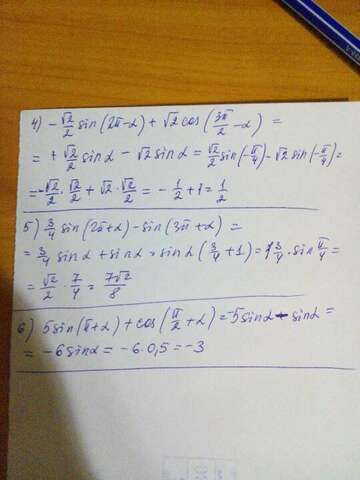 4) -√2/2 sin(2π-α) + √2 cos(3π/2 - α) =
= + √2/2 sin α - √2 sin α = √2/2 sin(-π/4) - √2 sin(-π/4) =
= -√2/2 · √2/2 + √2 · √2/2 = -1/2 + 1 = 1/2
5) 3/4 sin(2π+α) - sin(3π+α) =
= 3/4 sin α + sin α = sin α (3/4 + 1) = 1 3/4 · sin π/4 =
= √2/2 · 7/4 = 7√2/8
6) 5 sin(π+α) + cos(π/2 + α) = -5 sin α - sin α =
= -6 sin α = -6 · 0,5 = -3